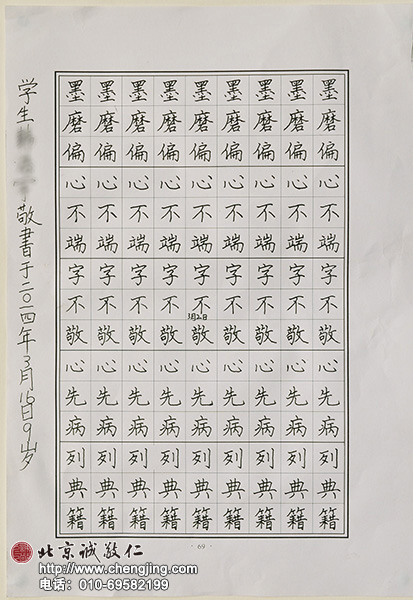 墨磨偏心不端字不敬心先病列典籍
墨磨偏心不端字不敬心先病列典籍
墨磨偏心不端字不敬心先病列典籍
墨磨偏心不端字不敬心先病列典籍
墨磨偏心不端字不敬心先病列典籍
3月2日
墨磨偏心不端字不敬心先病列典籍
墨磨偏心不端字不敬心先病列典籍
墨磨偏心不端字不敬心先病列典籍
墨磨偏心不端字不敬心先病列典籍
学生敬書于二〇一四年3月16日9岁
· 69 ·
北京诚敬仁
http://www.chengjing.com
电话：010-69582199